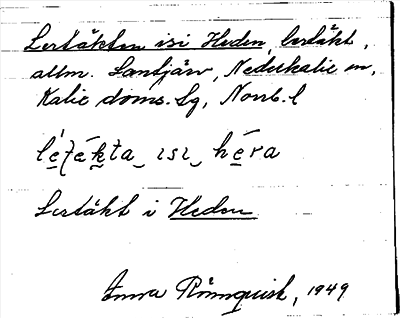 Lertäkten isi Heden, lertäkt,
allm. Santjärv, Nederkalix sn,
Kalix doms. Sg, Norrb. l
isi hera
Lertäkt i Heden
Anna Rönnquist, 1949